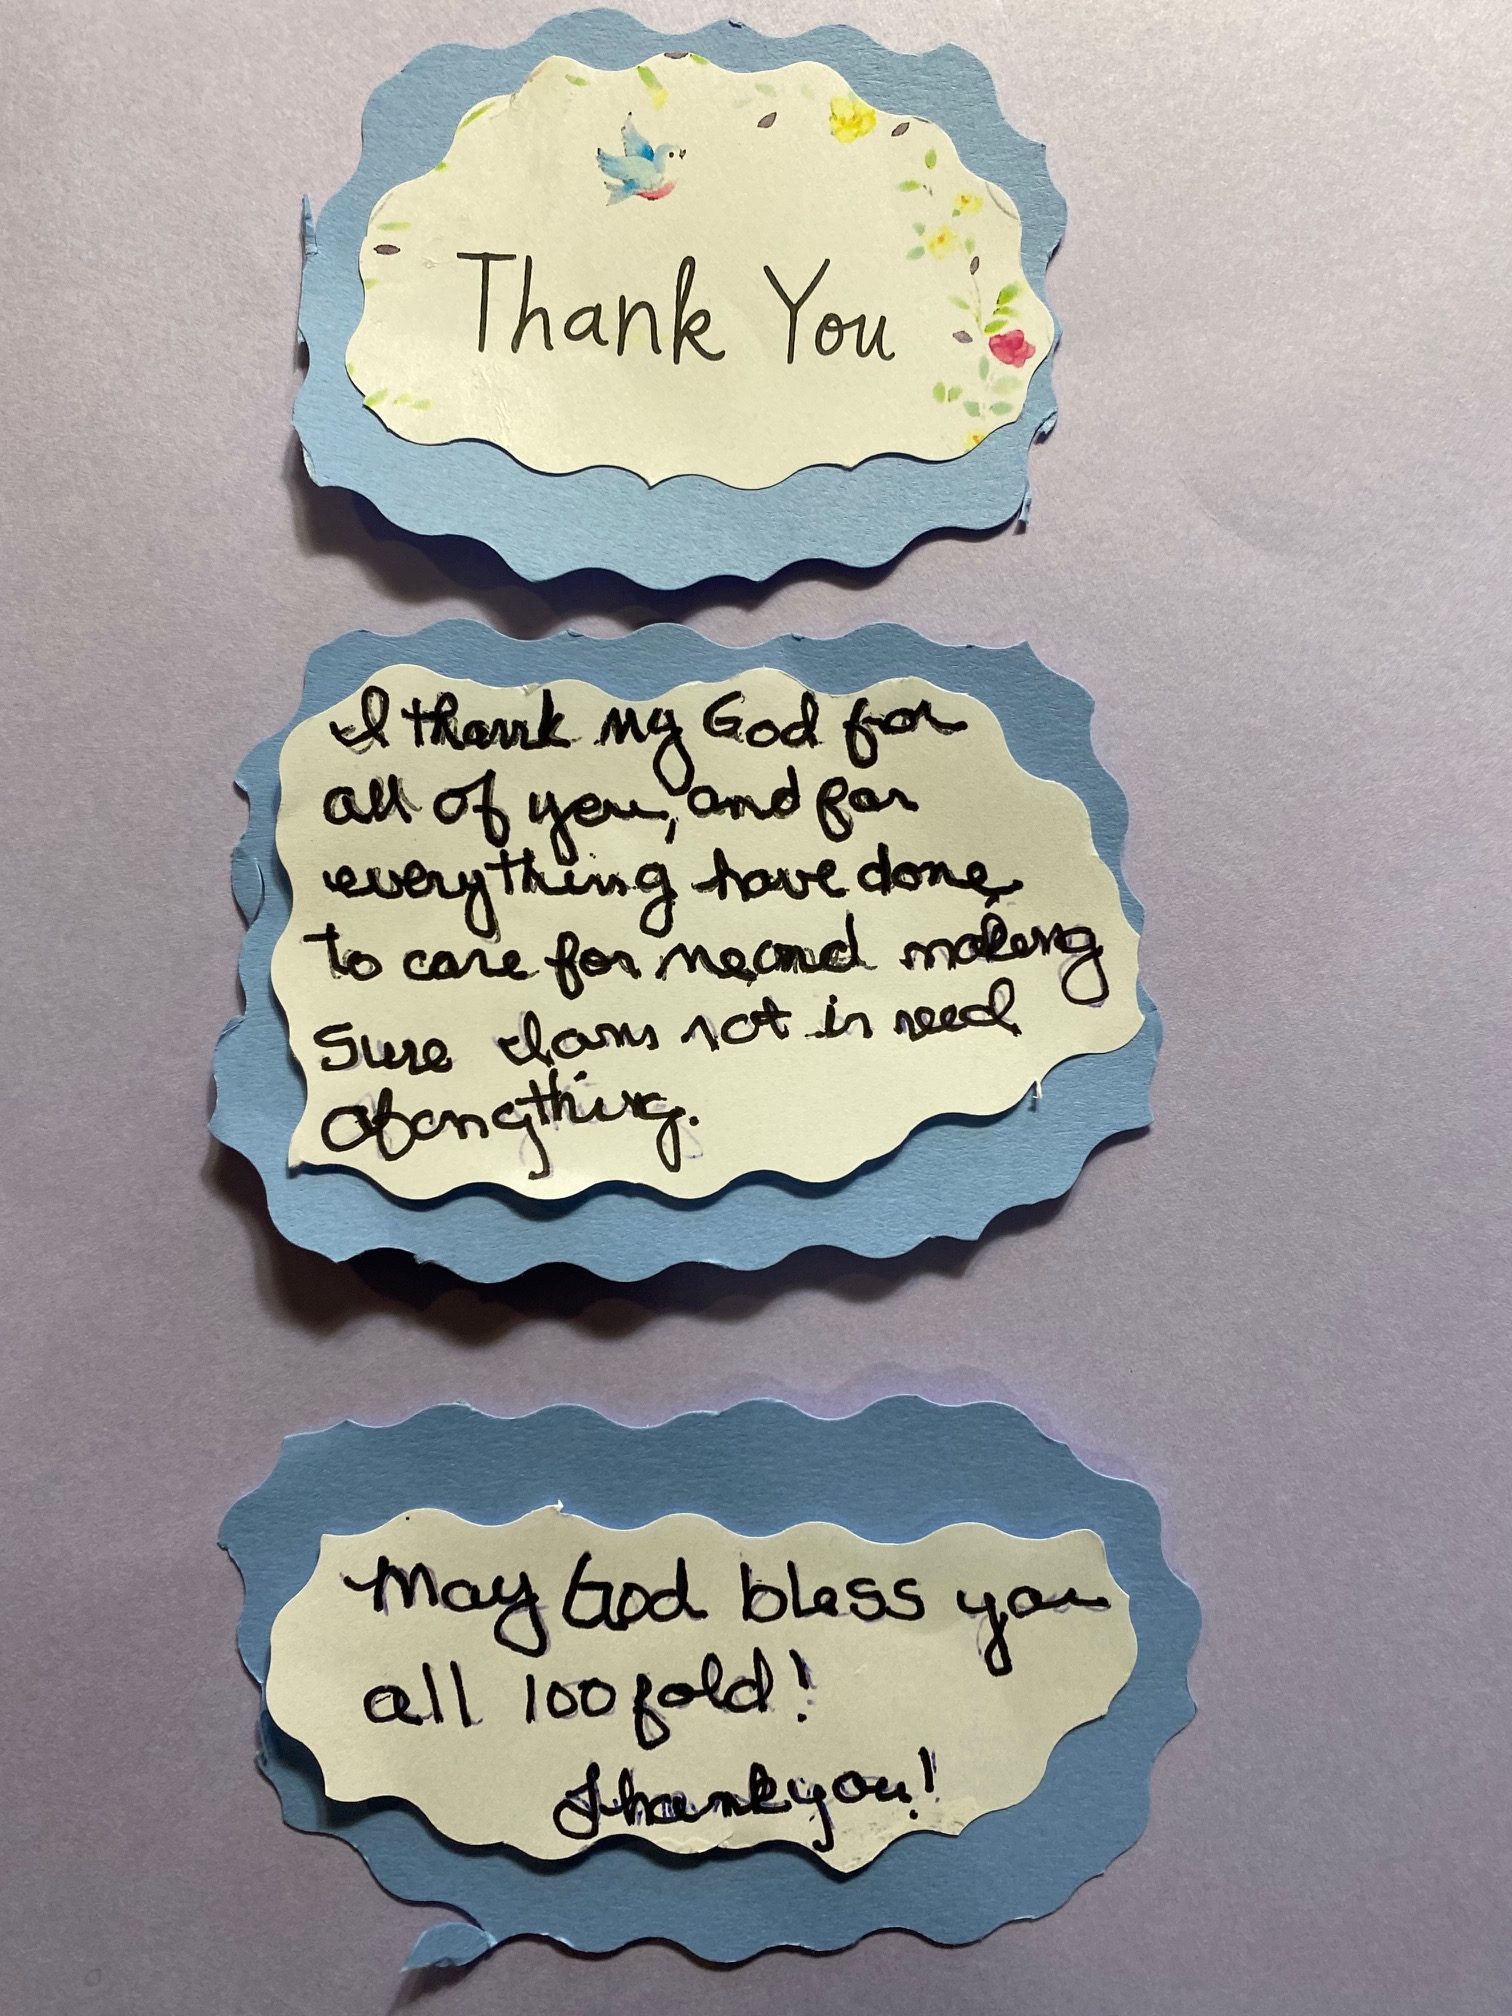 Thank You
I thank my God for
all of you, and for
everything have done,
to care for me, and making
sure I am not in need
of anything.
May God bless you
all 100 fold!
Thank you!